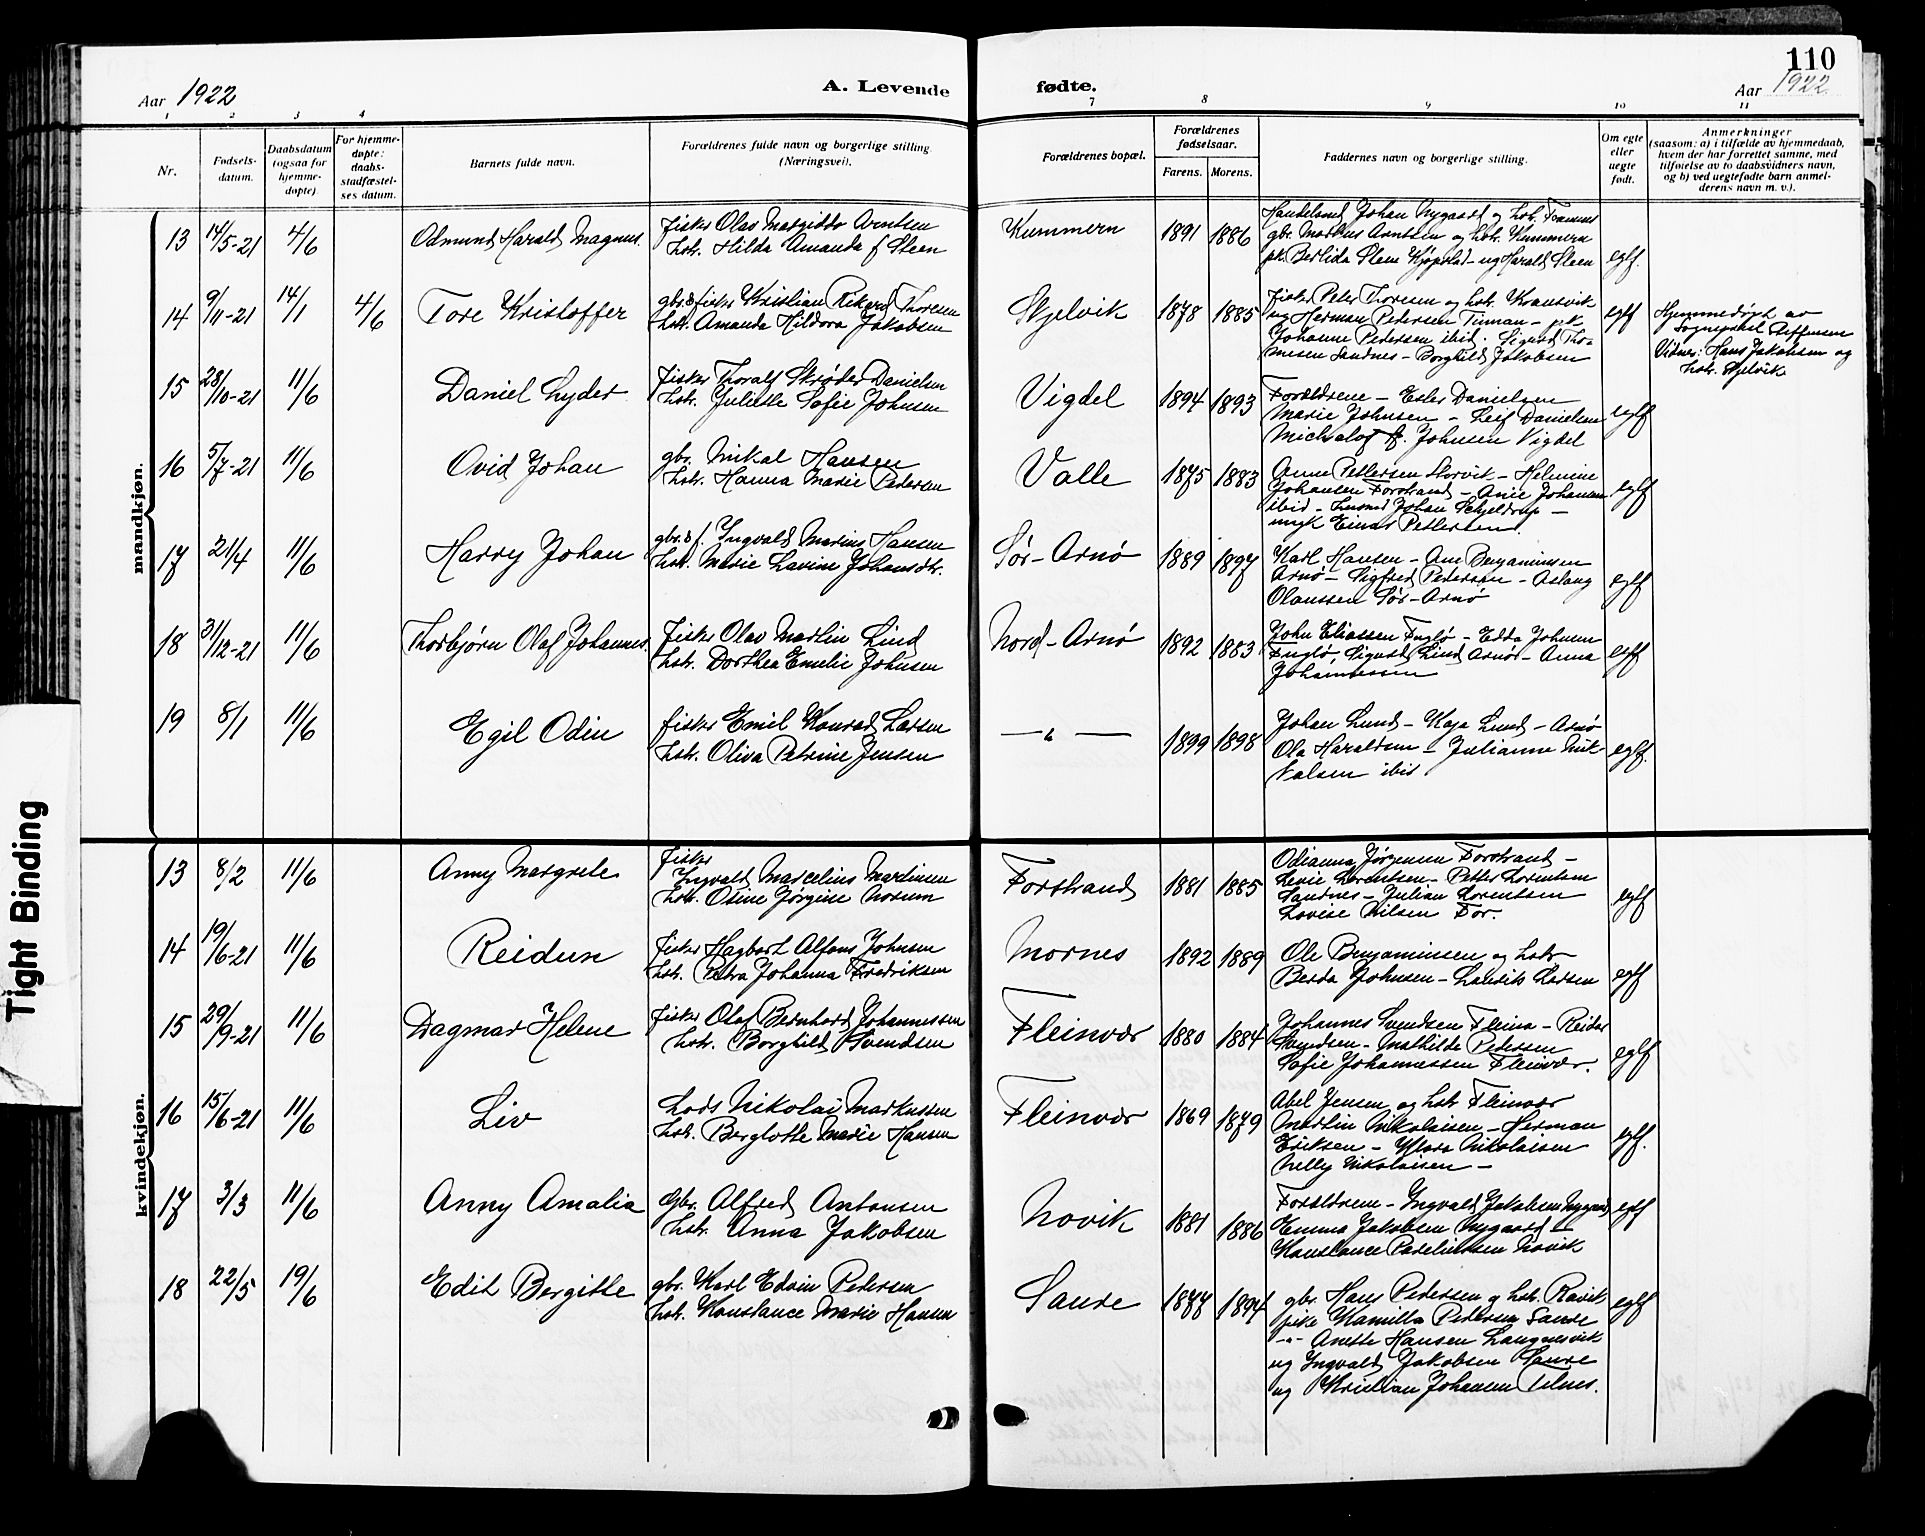 110
Aar 1922
A. Levende
fødte.
Aar 1922
1 2 3 4 7 8 9 10 11
Nr.
Fødsels-
datum.
Daabsdatum
(ogsaa for
hjemme-
døpte)
For hjemme-
døpte:
daabs-
stadfæstel-
ses datum.
Barnets fulde navn.
Forældrenes fulde navn og borgerlige stilling
(Næringsvei).
Forældrenes bopæl.
Forældrenes
fødselsaar.
Farens. Morens.
Faddernes navn og borgerlige stilling.
Om egte
eller
uegte
født.
Anmerkninger
(saasom: a) i tilfælde av hjemmedaab,
hvem der har forrettet samme, med
tilføielse av to daabsvidners navn,
og b) ved uegtefødte barn anmel-
derens navn m. v.).
mandkjøn.
13 14/5-21 4/6 Odmund Harald Magnus.
fisker Olav Margido Arntsen
hstr. Hilda Amanda f Steen
Kummern 1891 1886
Handelsmd Johan Nygaard og hstr.
gbr. Markus Arntsen og hstr. Kummern
pk. Berlida Steen Kjøpstad - ug Harald Steen
egf.
14 9/11-21 14/1 4/6 Tore Kristoffer
gbr. & fisker Kristian Rikard Thoresen
hstr. Amanda Hildora Jakobsen
Skjelvik 1878 1885
fisker Peter Thoresen og hstr.
ug Herman Pedersen - pk
Johanne Pedersen ibid. Sigurd Tho-
mesen Sandnes - Borghild Jakobsen
egf
Hjemmedøpt av
Sogneprest Steffensen
Vidner: Hans Jakobsen og
hstr. Skjelvik
15 28/10-21 11/6 Daniel Lyder
fisker Thoralf Strøder Danielsen
hstr. Juliette Sofie Johnsen
Vigdel 1894 1893
Forældrene - Ester Danielsen
Marie Johnsen - Leif Danielsen
Johnsen Vigdel
egf
16 5/7-21 11/6 Ovid Johan
gbr. Mikal Hansen
hstr. Hanna Marie Pedersen
Valle 1875 1883
Anne Pettersen Storvik - Helmine
Johansen Forstrand - Anie Johansen
ibid - Johan Schjeldrup -
ungk Einar Pettersen.
egf
17 21/4 11/6 Harry Johan
gbr. & f. Ingvald Marius Hansen
hstr. Marie Lavine Johansdtr.
Sør-Arnø 1889 1897
Karl Hansen - Ane Benjaminsen
Arnø - Sigfred Pedersen - Aslaug
Olaussen Sør-Arnø
egf
18 31/12-21 11/6 Thorbjørn Olaf Johannes.
fisker Olav Martin Lind
hstr. Dorthea Emelie Johnsen
Nord-Arnø 1892 1883
John Eliassen Fuglø - Edda Johnsen
Fuglø, Sigurd Lind Arnø - Anna
Johannessen
egf
19 8/1 11/6 Egil Odin
fisker Emil Konrad Larsen
hstr. Oliva Petrine Jensen
— " — 1899 1898
Johan Lund - Kaja Lund - Arnø
Ola Haraldsen - Julianne Mik-
kalsen ibid
egf.
kvindekjøn.
13 8/2 11/6 Anny Margrete
fisker
Ingvald Marcelius Martinsen
hstr. Otine Jørgine Norum
Forstrand 1881 1885
Odianna Jørgensen Forstrand -
Levie Lorentsen - Petter Lorentsen
Sandnes - Julian Lorentsen
Lovise Nilsen For.
egf
14 19/6-21 11/6 Reidun
fisker Hagbart Alfons Johnsen
hstr. Petra Johanna Fredriksen
Mornes 1892 1889
Ole Benjaminsen og hstr
Berda Johnsen - Laurits Larsen
egf
15 29/9-21 11/6 Dagmar Helene
fisker Olaf Bernhard Johannessen
hstr. Borghild Svendsen
Fleinvær 1880 1884
Johannes Svendsen Fleina - Reidar
Svendsen - Mathilde Pedersen
Sofie Johannessen Fleinvær.
egf
16 15/6-21 11/6 Liv
Lods Nikolai Markussen
hstr. Berglotte Marie Hansen
Fleinvær 1869 1879
Abel Jensen og hstr Fleinvær
Martin Nikolaisen - Herman
Eriksen - Klara Nikolaisen
Nelly Nikolaisen -
egf.
17 3/3 11/6 Anny Amalia
Gbr. Alfred Antonsen
hstr. Anna Jakobsen
Novik 1881 1886
Forældrene - Ingvald Jakobsen Nygaard
Emma Jakobsen Nygaard -
Konstance Novik
egf
18 22/5 19/6 Edit Bergitte
gbr. Karl Edvin Petersen
hstr. Konstance Marie Hansen
Saure 1877 1894
gbr. Hans Pedersen og hstr. Ravik
pike Kamilla Pedersen Saure
-"- Anette Hansen Langnesvik
ug Ingvald Jakobsen Saure
ug Kristian Johansen Telnes.
egf
Tight Binding